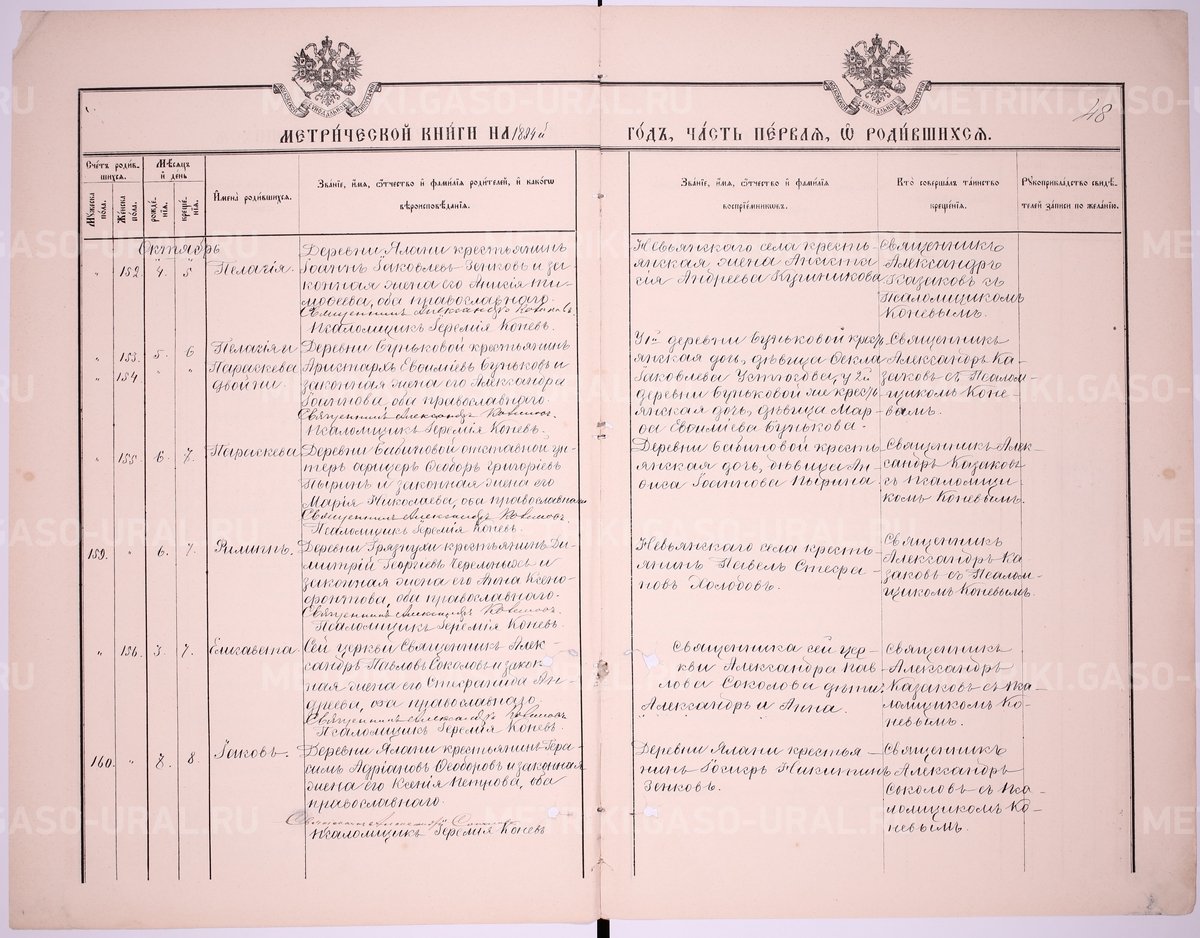 48
МЕТРИ́ЧЕСКОЙ КНИ́ГИ НА 1894 й ГО́ДЪ, ЧА́СТЬ ПЕ́РВАЯ, Ѿ РОДИ́ВШИХСЯ.
Сче́тъ роди́в-
шихся.
Му́жеска по́ла.
Же́нска по́ла.
Мѣ́сяцъ
и день
рожде́нія.
креще́нія.
Имена̀ роди́вшихся.
Зва́ніе, и́мя, о́тчество и фами́лія роди́телей, и како́гѡ
вѣроисповѣ́данія.
Зва́ніе, и́мя, о́тчество и фами́лія
воспріе́мниковъ.
Кто̀ соверша́лъ та́инство
креще́нія.
Рукоприкла́дство свидѣ́-
телей за́писи по жела́нію.
Октябрь
" 152. 4. 5 Пелагія.
Деревни Ялани крестьянинъ
Іоаннъ Іаковлевъ Зенковъ и за-
конная жена его Анисія Ти-
моѳеева, оба православнаго.
Священникъ Александръ Казаковъ.
Псаломщикъ Іеремія Коневъ.
Невьянскаго села кресть-
янская жена Анаста-
сія Андреева Куриникова
Священникъ
Александръ
Казаковъ съ
Псаломщикомъ
Коневымъ.
" 153. 5. 6 Пелагія и
" 154 " " Параскева
двойни.
Деревни Буньковой крестьянинъ
Аристархъ Евѳиміевъ Буньковъ и
законная жена его Александра
Іоаннова, оба православнаго.
Священникъ Александръ Казаковъ.
Псаломщикъ Іеремія Коневъ.
У 1й деревни Буньковой кресть-
янская дочь, дѣвица Ѳекла
Іаковлева Устюгова, у 2й
деревни Буньковой же кресть-
янская дочь, дѣвица Мар-
ѳа Евѳиміева Бунькова.
Священникъ
Александръ Ка-
заковъ съ Псалом-
щикомъ Коне-
вымъ.
" 155 6. 7. Параскева
Деревни Бабиновой отставной ун-
теръ офицеръ Ѳеодоръ Григоріевъ
Пыринъ и законная жена его
Марія Николаева, оба православнаго
Священникъ Александръ Казаковъ.
Псаломщикъ Іеремія Коневъ.
Деревни Бабиновой кресть-
янская дочь, дѣвица Ан-
фиса Іоаннова Пырина.
Священникъ Алек-
сандръ Казаковъ
съ псаломщи-
комъ Коневымъ.
159. " 6. 7. Филиппъ.
Деревни Грязнухи крестьянинъ Ди-
митрій Георгіевъ Черемныхъ и
законная жена его Анна Ксено-
фонтова, оба православнаго.
Священникъ Александръ Казаковъ.
Псаломщикъ Іеремія Коневъ.
Невьянскаго села кресть-
янинъ Павелъ Стефа-
новъ Холодовъ.
Священникъ
Александръ Ка-
заковъ съ Псалом-
щикомъ Коневымъ.
" 156. 3. 7. Елисавета.
Сей церкви Священникъ Алек-
сандръ Павловъ Соколовъ и закон-
ная жена его Стефанида Ан-
дреева, оба православнаго
Священникъ Александръ Казаковъ
Псаломщикъ Іеремія Коневъ.
Священника сей цер-
кви Александра Пав-
лова Соколова дѣти:
Александръ и Анна.
Священникъ
Александръ
Казаковъ съ Пса-
ломщикомъ Ко-
невымъ.
160. " 8. 8. Іаковъ.
Деревни Ялани крестьянинъ Гера-
симъ Адріановъ Ѳеодоровъ и законная
жена его Ксенія Петрова, оба
православнаго.
Священникъ Александръ Соколовъ
Псаломщикъ Іеремія Коневъ
Деревни Ялани крестья-
нинъ Іосифъ Никитинъ
Зенковъ.
Священникъ
Александръ
Соколовъ съ Пса-
ломщикомъ Ко-
невымъ.
METRIKI.GASO-URAL.RU